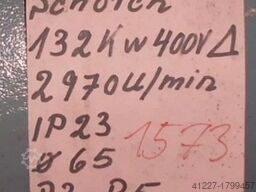 Schorch
132 Kw 400V Δ
2970 U/min
IP 23
ø 65
1573
B3 B5
41227-1799457